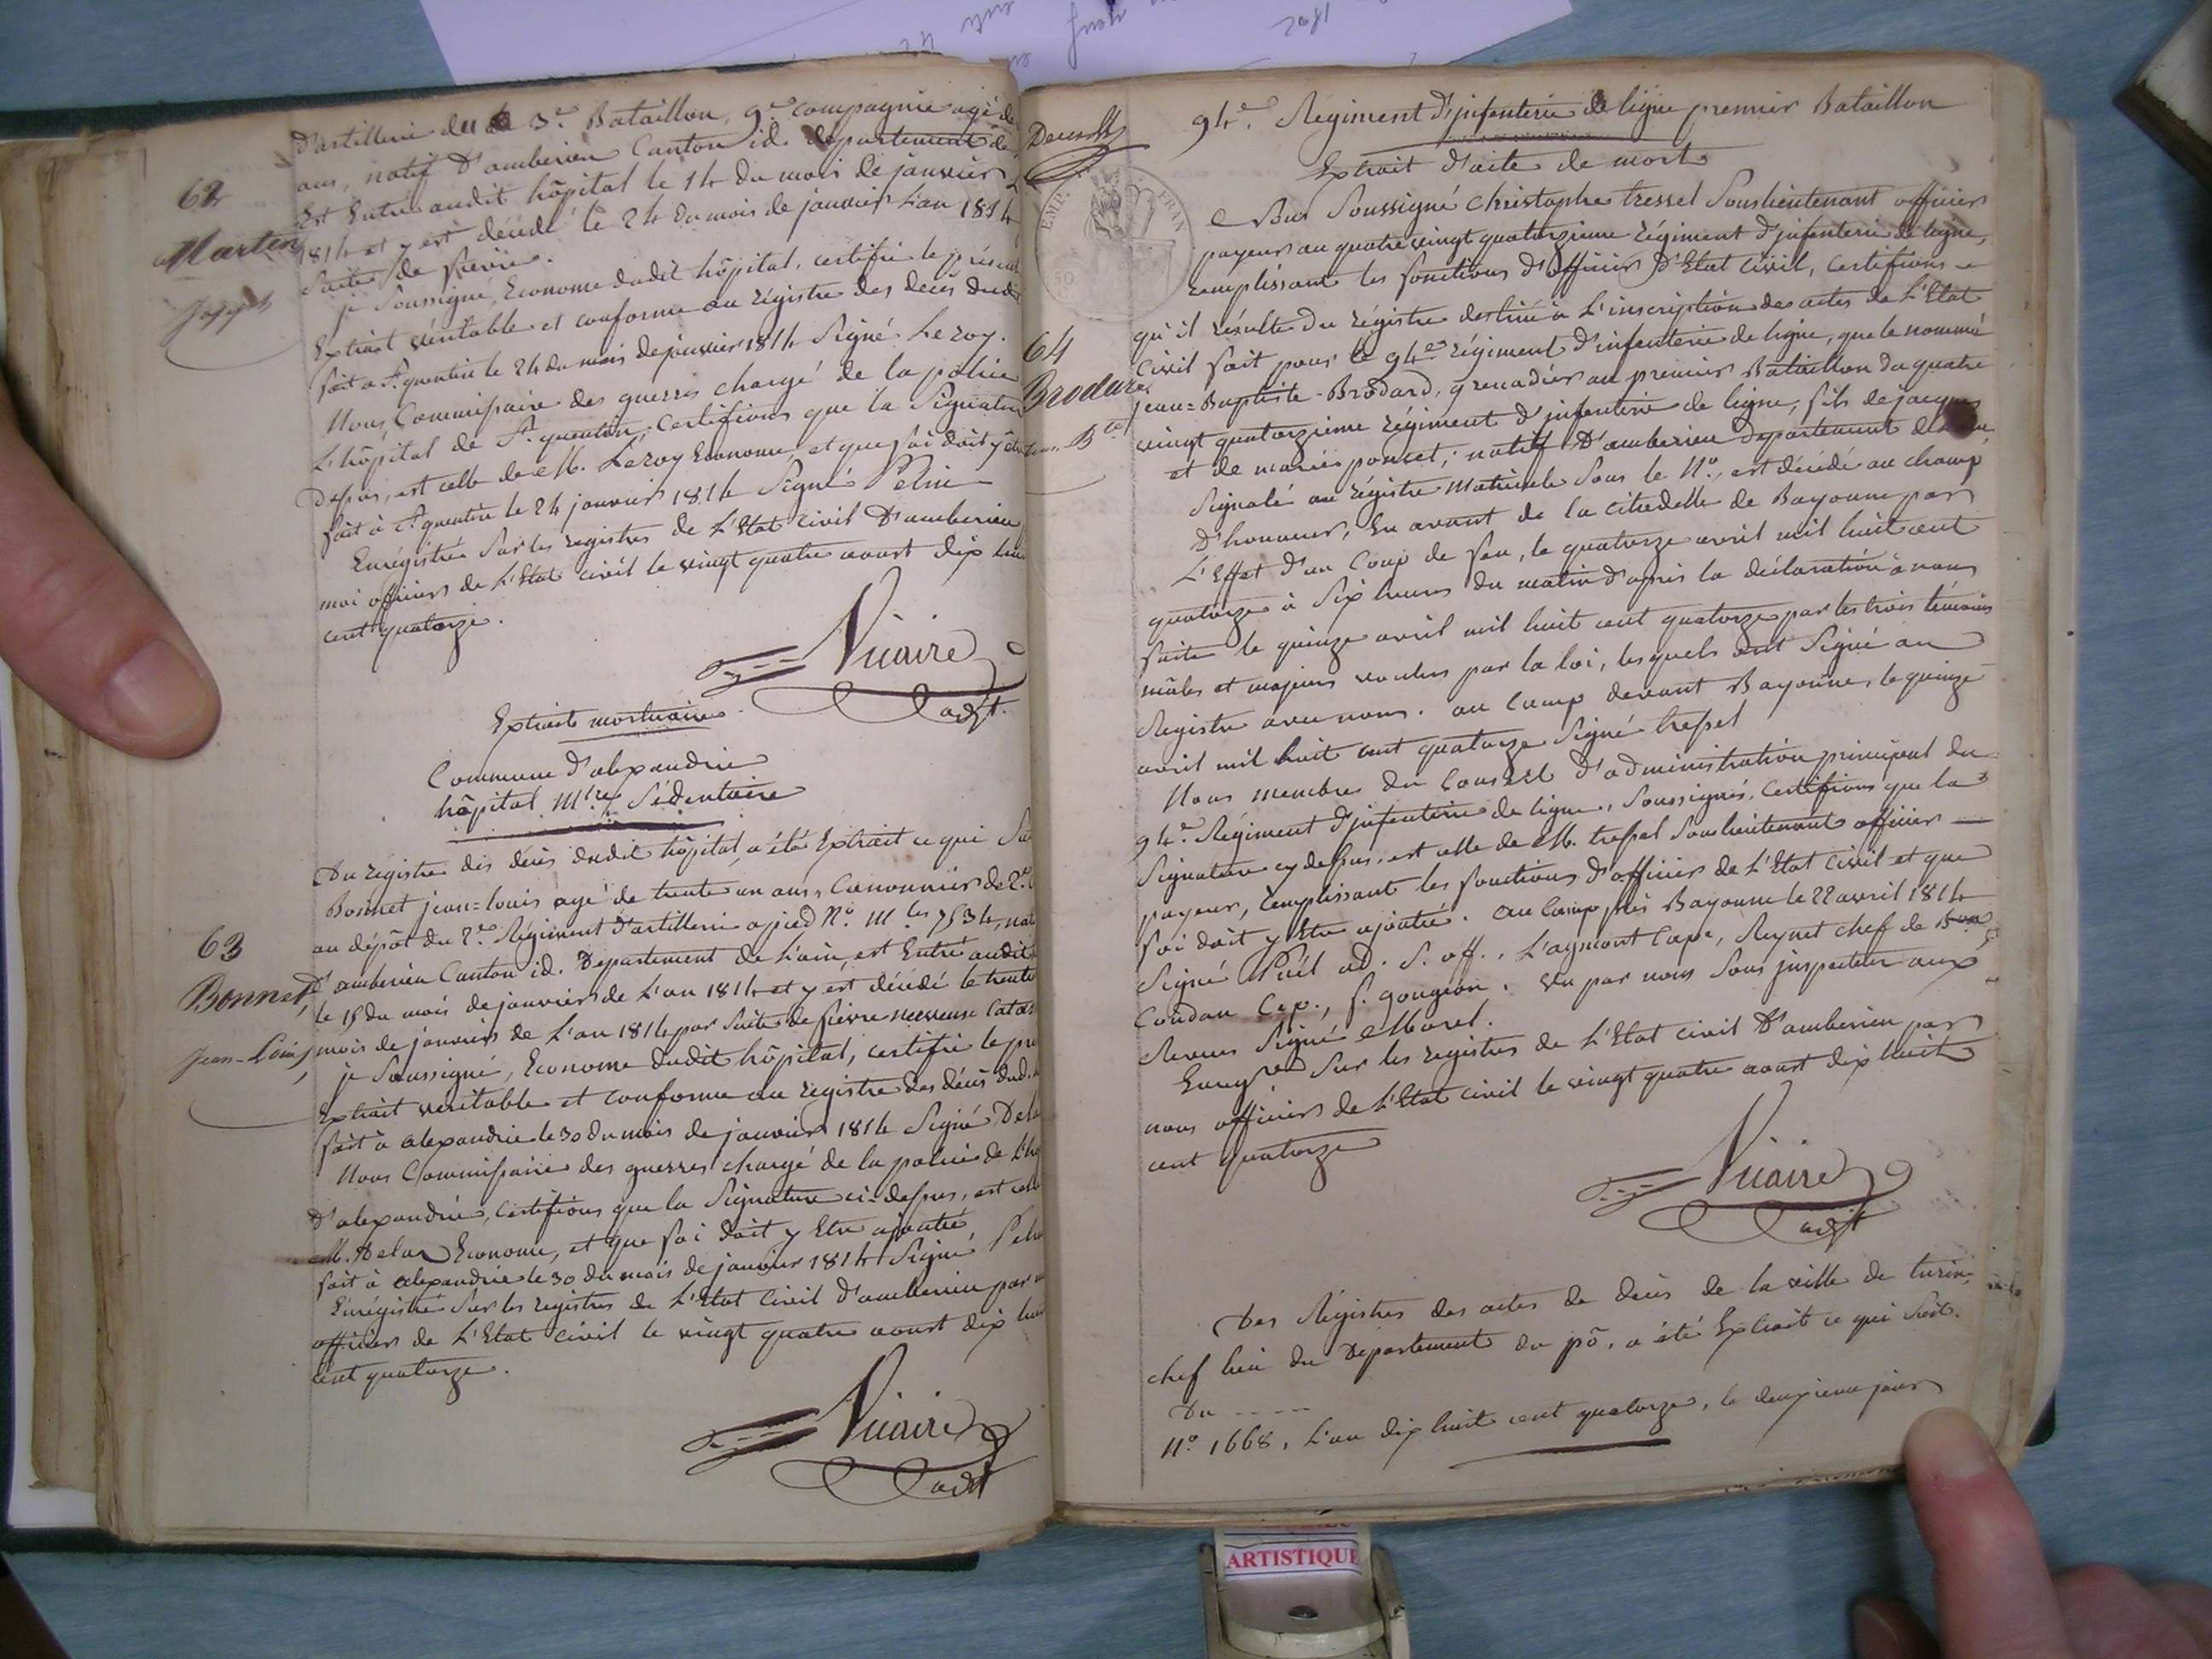 d'artillerie du 3.e Bataillon, 9.e compagnie agé de
ans, natif d'amberieu Canton id. département de
Est Entré audit hôpital le 14 du mois de janvier
1814 et y est décédé le 24 du mois de janvier L'an 1814
Suite de fièvre.
62
Martin
Joseph
je Soussigné, Econome dudit hôpital, certifie le présent
Extrait véritable et conforme au registre des décès dudit
fait a St. quentin le 24 du mois de janvier 1814 Signé Leroy.
Nous, Commissaire des guerres chargé de la police
L'hôpital de St. quentin, Certifions que la Signature
Dessus, est celle de M. Leroy Econome, et que foi doit y être
fait à St. quentin le 24 janvier 1814 Signé
Enrégistré Sur les registres de L'Etat civil D'amberieu
moi officier de L'Etat civil le vingt quatre aoust dix huit
cent quatorze.
Vicaire
adjt.
Extrait mortuaire
Commune d'alexandrie
hôpital M.re Sédentaire
Du régistre des décès dudit hôpital, a été Extrait ce qui Suit
63
Bonnet,
Jean-Louis,
Bonnet jean=louis agé de trente un ans, Canonnier de 2.e
au dépôt du 2.e Régiment d'artillerie a pied N.o M.les 7534, natif
D'amberieu Canton id. Département de L'ain, est Entré audit
le 15 du mois de janvier de L'an 1814 et y est décédé le trente
mois de janvier de L'an 1814 par Suite de fièvre nerveuse
je Soussigné, Econome dudit hôpital, certifie le
Extrait véritable et conforme au registre des décès dud.
fait à alexandrie le 30 du mois de janvier 1814 Signé
Nous Commissaire des guerres chargé de la police de
D'alexandrie, Certifions que la Signature ci-dessus, est celle
M. Econome, et que foi doit y Etre ajoutée
fait à alexandrie le 30 du mois de janvier 1814 Signé
Enrégistré Sur les registres de L'Etat Civil d'amberieu par
officier de L'Etat civil le vingt quatre aoust dix huit
cent quatorze.
Vicaire
adjt
EMP. FRAN
94.e Régiment d'infenterie de ligne premier Bataillon
Extrait d'acte de mort
Nous Soussigné Christophe tressel Souslieutenant officier
payeur au quatre vingt quatorzieme régiment d'infenterie de ligne,
remplissant les fonctions d'officier d'Etat Civil, Certifions
qu'il résulte du régistre destiné à L'inscription des actes de L'Etat
Civil fait pour le 94.e régiment d'infenterie de ligne, que le nommé
64
Brodard
jean=Baptiste-Brodard, grenadier au premier Bataillon du quatre
vingt quatorzieme régiment d'infenterie de ligne, fils de jacques
et de marie poncet; natif d'amberieu departement de
Signalé au régistre Matricule Sous le N.o, est décédé au champ
D'honneur, En avant de la citadelle de Bayonne par
L'Effet d'un Coup de feu, le quatorze avril mil huit cent
quatorze à Six heures du matin d'après la déclaration à nous
faite le quinze avril mil huit cent quatorze par les trois témoins
mâles et majeurs voulus par la loi, lesquels ont Signé au
Registre avec nous. au Camp devant Bayonne, le quinze
avril mil huit cent quatorze Signé tressel
Nous membres du Conseil d'administration principal du
94.e Régiment d'infenterie de ligne, Soussignés, Certifions que la
Signature cy dessus, est celle de M. tressel Souslieutenant officier
payeur, remplissant les fonctions d'officier de L'Etat Civil et que
foi doit y Etre ajoutée. au Camp près Bayonne le 22 avril 1814
Signé ad. S. off., L'aymont Cape, Reynet chef de B.on
Coudau Cap., f. gougeon. vu par nous Sous inspecteur aux
Revues Signé Morel.
Enreg.ré Sur les registres de L'Etat civil D'amberieu par
nous officier de L'Etat civil le vingt quatre aoust dix huit
cent quatorze
Vicaire
adjt
Des Régistres des actes de décès de la ville de turin,
chef lieu du Département du pô, a été Extrait ce qui Suit.
Du
N.o 1668, L'an dix huit cent quatorze, le deuxieme jour
ARTISTIQUE